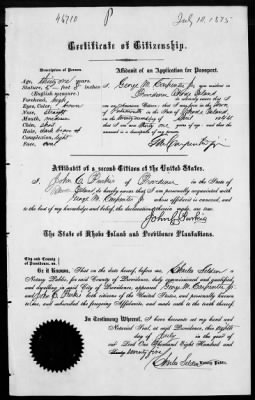 46710
P
July 10. 1875
Certificate of Citizenship.
Description of Person.
Age, thirty one years
Stature, 5 feet 8 inches
(English measure.)
Forehead, high
Eyes, brown
Nose, straight
Mouth, medium
Chin,
Hair, dark brown
Complexion, light
Face, oval
Affidavit of an Application for Passport.
I, George M. Carpenter Jr resident in
Providence Rhode Island
do hereby swear that I
am an American Citizen; that I was born in the town
of Portsmouth in the State of Rhode Island
on the twenty second day of April 1844
that I am thirty one years of age; and that the
annexed is a description of my person.
Geo. M. Carpenter Jr
Affidavit of a second Citizen of the United States.
I, John C. Purkis of Providence in the State
of Rhode Island do hereby swear that I am personally acquainted with
George M. Carpenter Jr whose affidavit is annexed, and to the best
of my knowledge and belief, the declarations therein made, are true.
John C. Purkis
The State of Rhode Island and Providence Plantations.
City and County
of Providence, ss.
Be it Known, That on this date hereof, before me, Charles Selden a
Notary Public, for said County of Providence, duly commissioned and qualified,
and dwelling in said City of Providence, appeared George M. Carpenter Jr
and John C. Purkis both citizens of the United States, and personally known
to me, and subscribed the foregoing Affidavits, and made oath to the truth thereof.
In Testimony Whereof, I have hereunto set my hand and
Notarial Seal, at said Providence, this eighth
day of July in the year of
our Lord One Thousand Eight Hundred and
Seventy five
Charles Selden Notary Public.